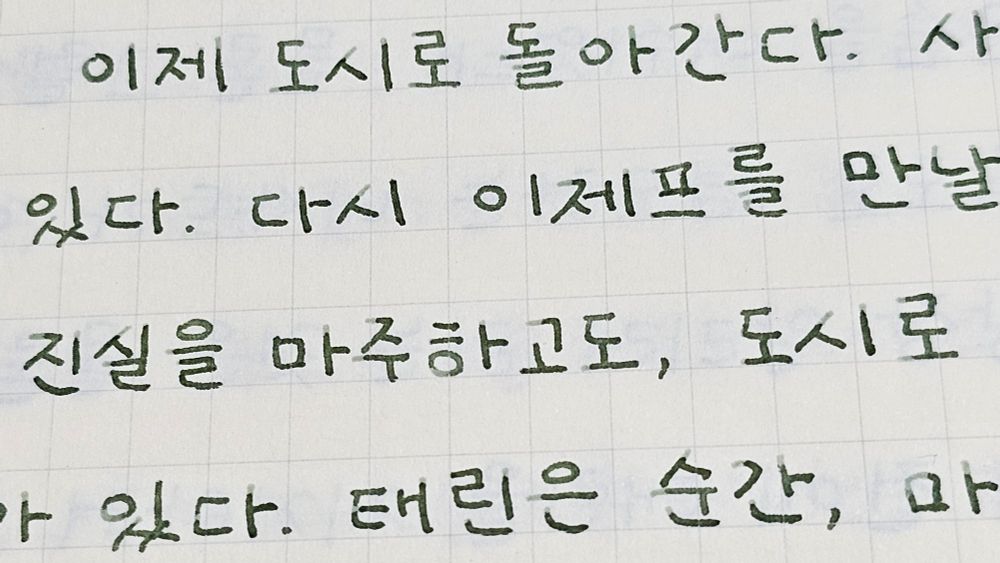 이제 도시로 돌아간다. 사
있다. 다시 이제프를 만날
진실을 마주하고도, 도시로
아 있다. 태린은 순간, 마